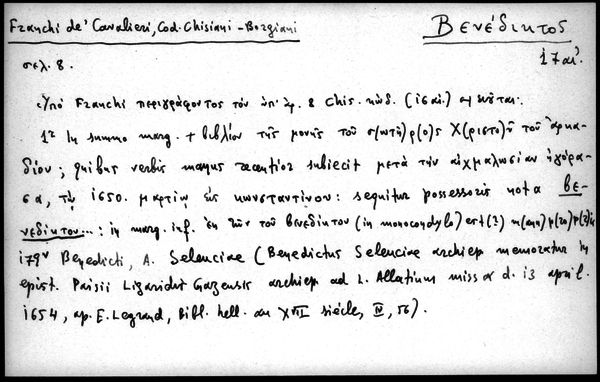 Franchi de' Cavalieri, Cod. Chisiani - Borgiani
Βενέδικτος
17 αἰ.
σελ. 8.
Ὑπό Franchi περιγράφοντος τόν ὑπ' ἀρ. 8 Chis. κώδ. (16 αἰ.) σημειοῦται:
1r In summo marg. + βιβλίον τῆς μονῆς τοῦ σ(ωτῆ)ρ(ο)ς Χ(ριστο)ῦ τοῦ ἀρκα-
δίου; quibus verbis manus recentior subiecit μετά τήν αἰχμαλωσίαν ἠγόρα-
σα, τῷ 1650. μαρτίῳ εἰς κωνσταντίνου: sequitur possessoris nota βε-
νεδίκτου...: in marg. inf. ἐκ τῶν τοῦ βενεδίκτου (in monocondylo) est (?)
179v Benedicti, A. Seleuciae (Benedictus Seleuciae archiep. memoratur in
epist. Paisii Ligaridis Gazensis archiep. ad L. Allatium missa d. 13 april.
1654, ap. E. Legrand, Bibl. hell. au XVII siècle, IV, 56).